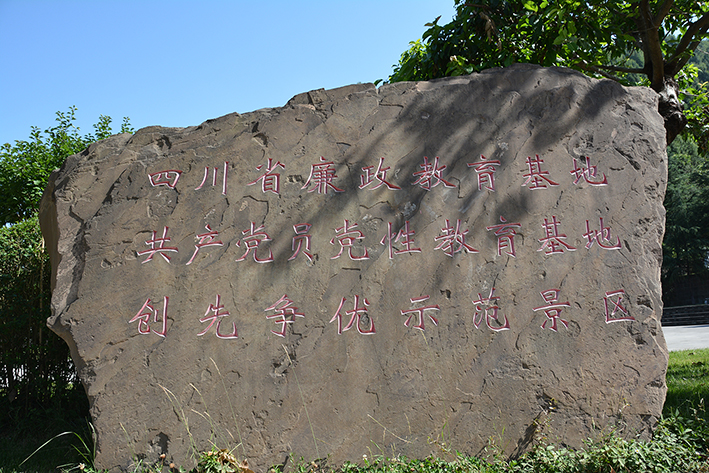 四川省廉政教育基地
共产党员党性教育基地
创先争优示范景区